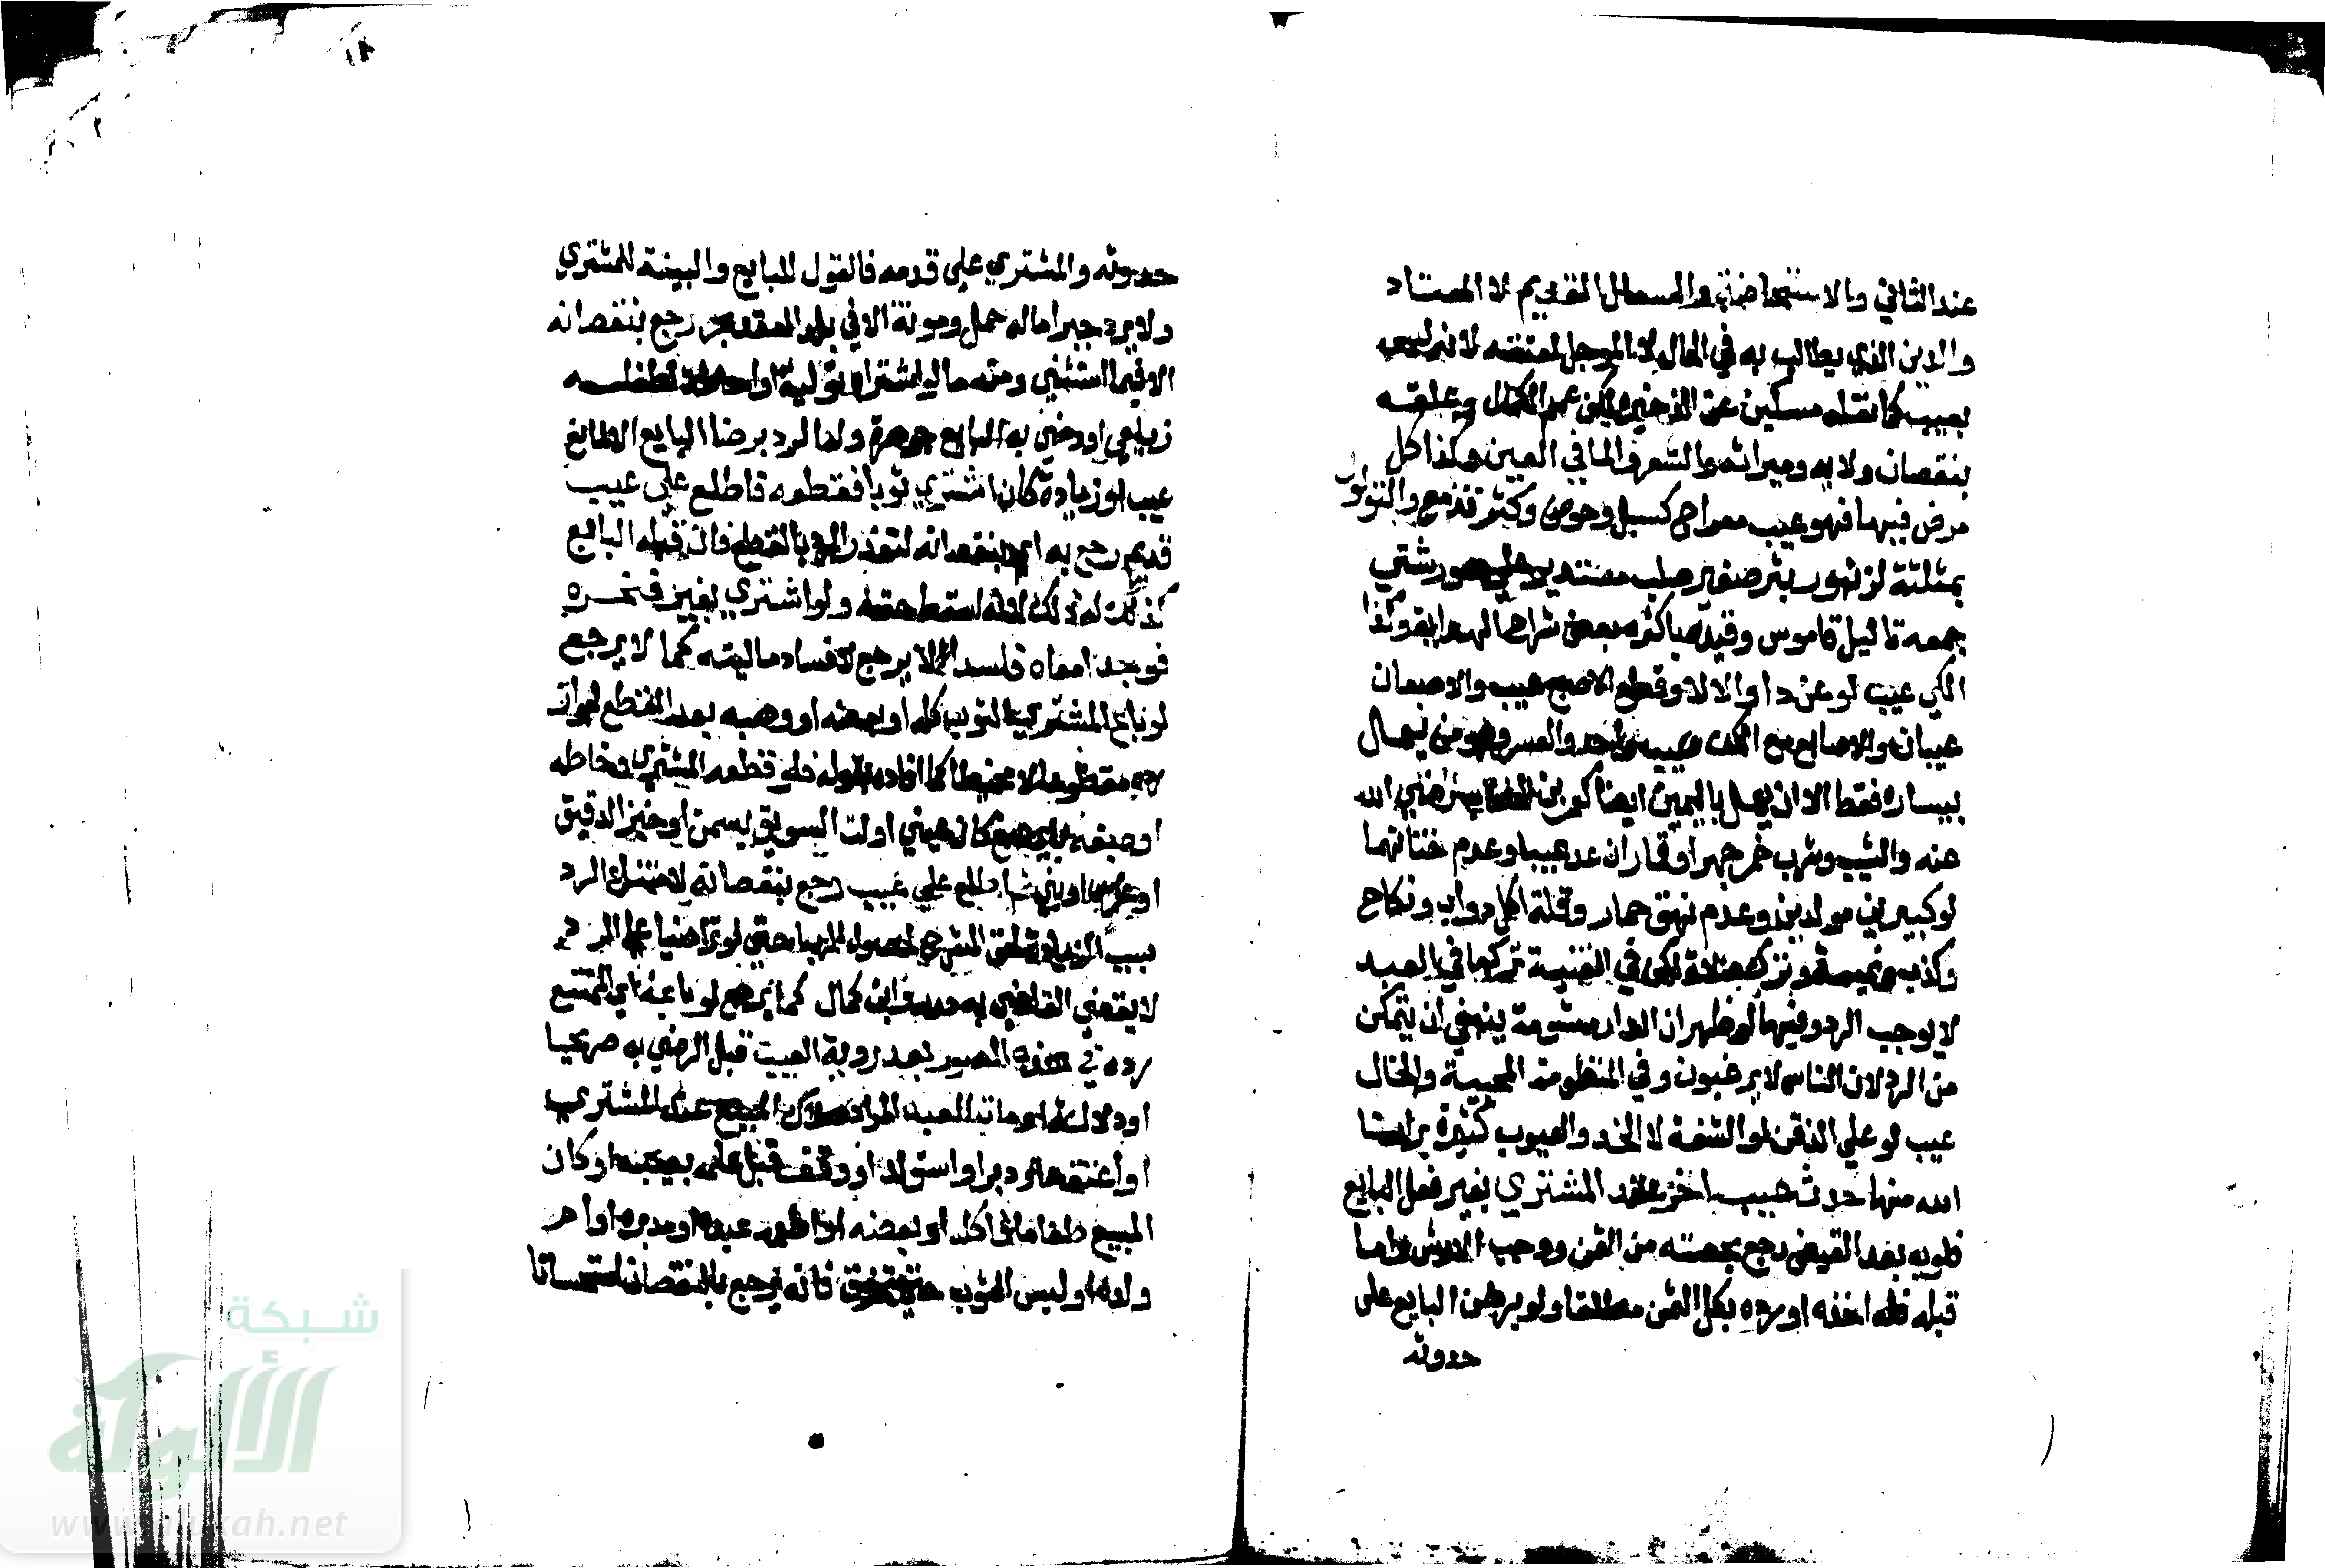 عند الثاني والاستحاضة والسعال القديم لا المعتاد
والدين الذي يطالب به في الحال لا الموجل لعتقه لانه ليس
بعيب كما نقله مسكين عن الذخيرة لكن عمم الكمال وعلله
بنقصان ولايه وميراثه والشعر والما في العين وكذا كل
مرض فيها فهو عيب معراج كسبل وحوص وكثرة دمع والثولول
بمثلثة لزنبور بثر صغير صلب مستدير على صور شتى
جمعه تاليل قاموس وقيده بالكثرة بعض شراح الهداية وكذا
الكي عيب لو عن داء والا لا وقطع الاصبع عيب والاصبعان
عيبان والاصابع مع الكف عيب واحد والعسر وهو من يعمل
بيساره فقط الا ان يعمل باليمين ايضا كعمر بن الخطاب رضي الله
عنه والشيب وشرب خمر جهرا وقمار ان عد عيبا وعدم ختانهما
لو كبيرين مولدين وعدم نهق حمار وقلة اكل دواب ونكاح
وكذب ونميمة وترك صلاة لكن في القنية تركها في العبد
لا يوجب الرد وفيها لو ظهر ان الدار مشومة ينبغي ان يتمكن
من الرد لان الناس لا يرغبون وفي المنظومة المحبية والخال
عيب لو على الذقن او الشفة لا الخد والعيوب كثيرة برانا
الله منها حدث عيب اخر عند المشتري بغير فعل البايع
فلو به بعد القبض رجع بحصته من الثمن ووجب الارش واما
قبله فله اخذه او رده بكل الثمن مطلقا ولو برهن البايع على
حدوثه
حدوثه والمشتري على قدمه فالقول للبايع والبينة للمشتري
ولا يرد جبرا ما له حمل ومونة الا في بلد العقد بحر رجع بنقصانه
الا فيما استثني ومنه ما لو اشتراه تولية او خاطه لطفله
زيلعي او رضي به البايع جوهرة وله الرد برضا البايع الا لمانع
عيب او زيادة كان اشترى ثوبا فقطعه فاطلع على عيب
قديم رجع به اي بنقصانه لتعذر الرد بالقطع فان قبله البايع
كذلك له ذلك لانه اسقط حقه ولو اشترى بعيرا فنحره
فوجد امعاه فاسدا لا يرجع لافساد ماليته كما لا يرجع
لو باع المشتري الثوب كله او بعضه او وهبه بعد القطع لجواز
رده مقطوعا لا مخيطا كما افاده بقوله فلو قطعه المشتري وخاطه
او صبغه باي صبغ كان عيني او لت السويق بسمن او خبز الدقيق
او غرس او بنى ثم اطلع على عيب رجع بنقصانه لامتناع الرد
بسبب الزيادة لحق الشرع لحصول الربا حتى لو تراضيا على الرد
لا يقضي القاضي به درر وابن كمال كما يرجع لو باعه اي الممتنع
رده في هذه الصور بعد روية العيب قبل الرضى به صريحا
او دلالة او مات العبد المراد هلاك المبيع عند المشتري
او اعتقه او دبر او استولد او وقف قبل علمه بعيبه او كان
المبيع طعاما فاكله او بعضه او اطعمه عبده او مدبره او ام
ولده او لبس الثوب حتى تخرق فانه يرجع بالنقصان استحسانا
شبكة
الألوكة
www.alukah.net